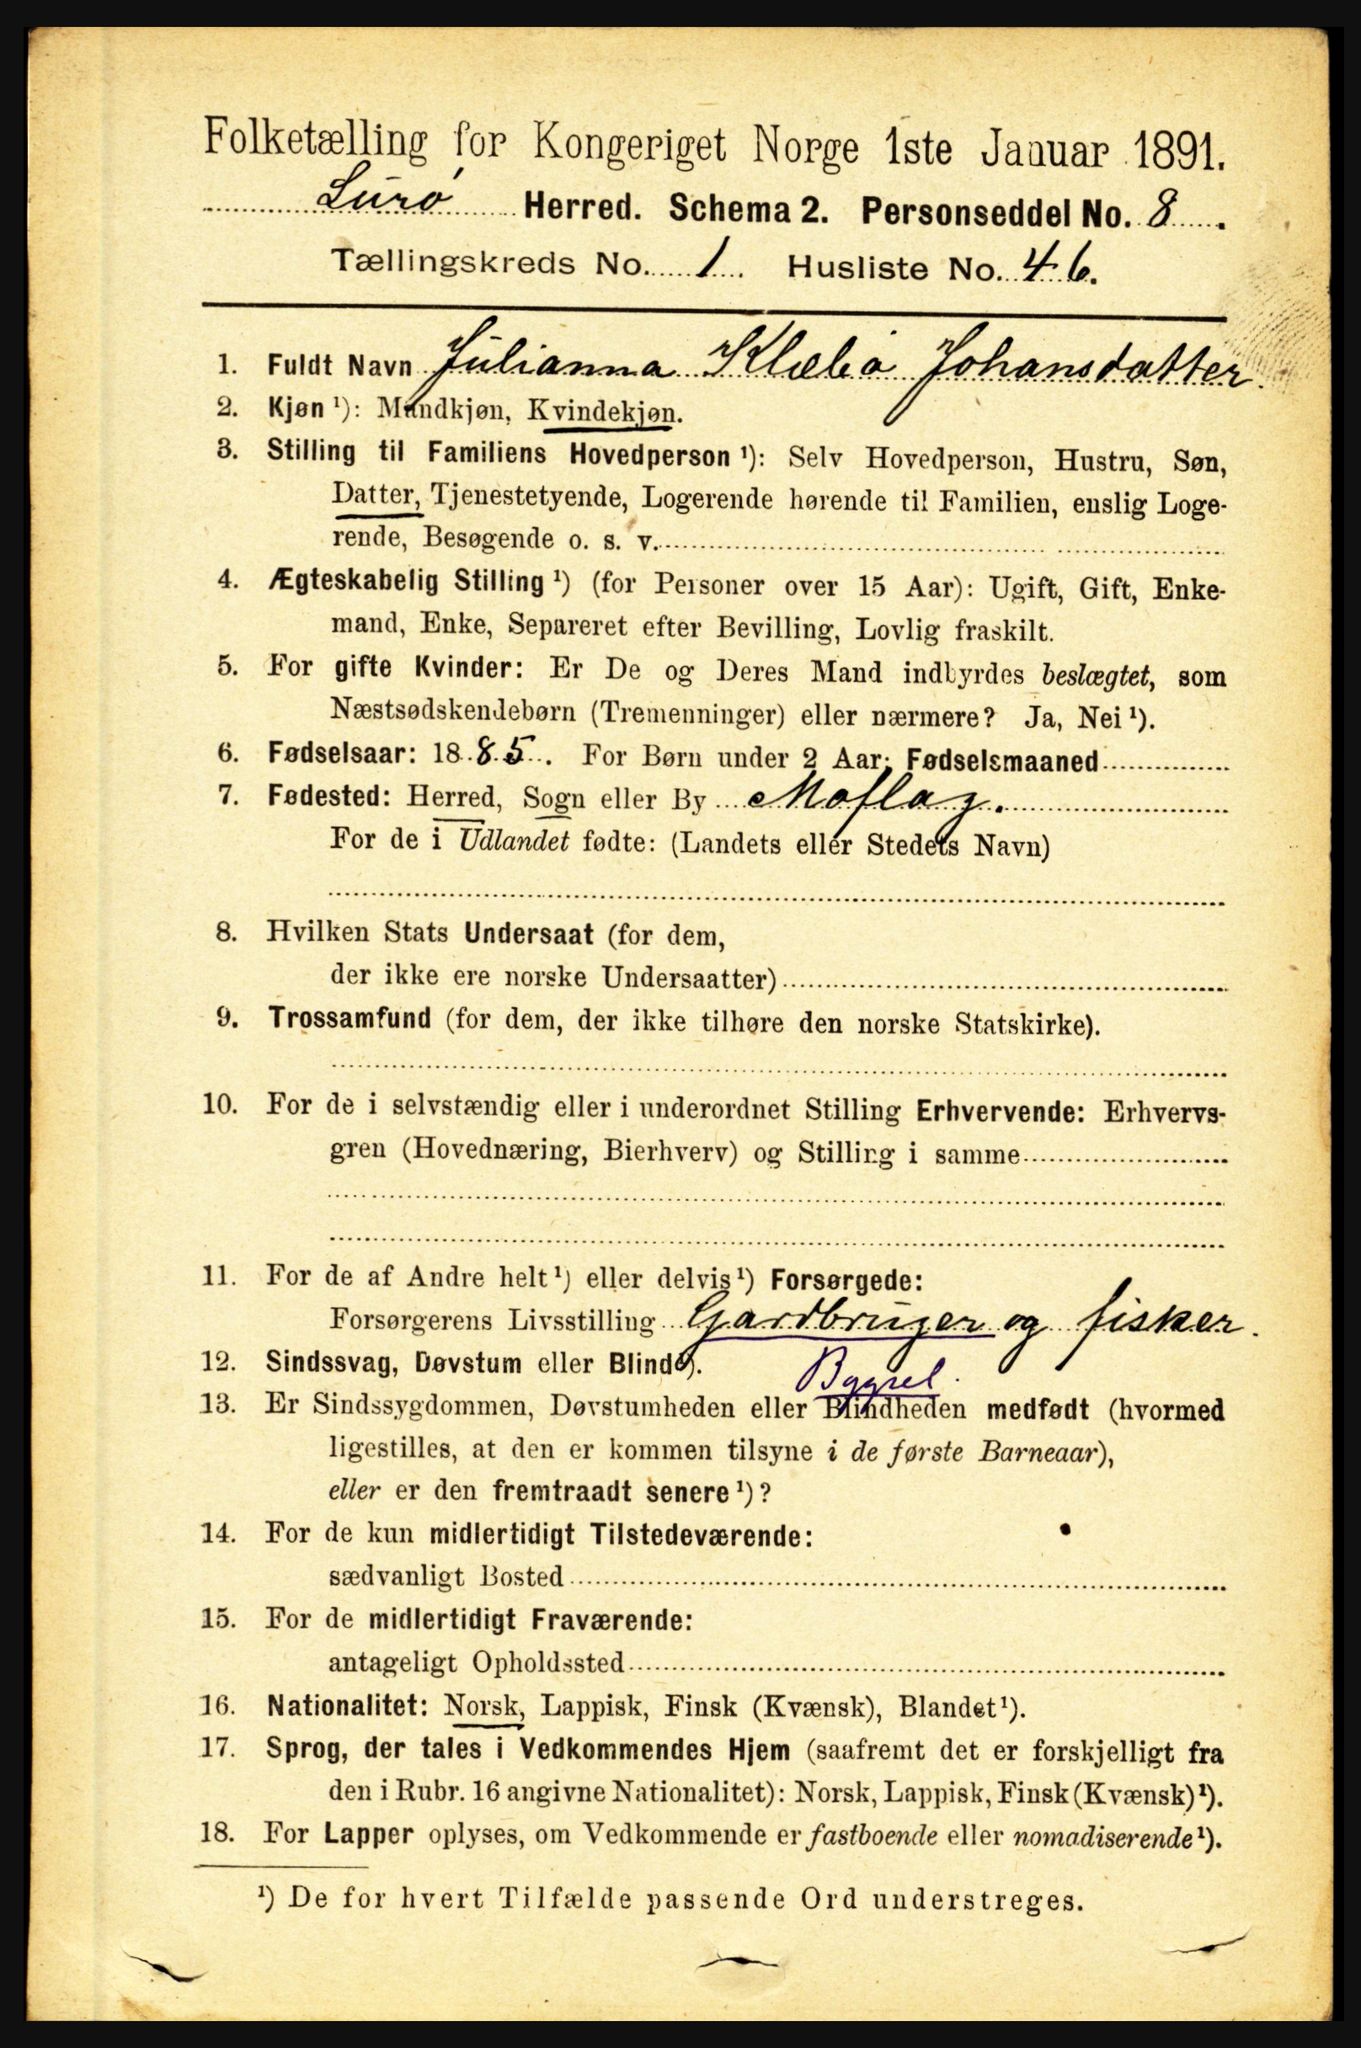 Folketælling for Kongeriget Norge 1ste Januar 1891.
Lurø Herred. Schema 2. Personseddel No. 8.
Tællingskreds No. 1. Husliste No. 46.
1. Fuldt Navn Julianna Klæbo Johansdatter.
2. Kjøn ¹): Mandkjøn, Kvindekjøn.
3. Stilling til Familiens Hovedperson ¹): Selv Hovedperson, Hustru, Søn,
Datter, Tjenestetyende, Logerende hørende til Familien, enslig Loge-
rende, Besøgende o. s. v.
4. Ægteskabelig Stilling ¹) (for Personer over 15 Aar): Ugift, Gift, Enke-
mand, Enke, Separeret efter Bevilling, Lovlig fraskilt.
5. For gifte Kvinder: Er De og Deres Mand indbyrdes beslægtet, som
Næstsødskendebørn (Tremenninger) eller nærmere? Ja, Nei ¹).
6. Fødselsaar: 1885. For Børn under 2 Aar: Fødselsmaaned
7. Fødested: Herred, Sogn eller By Moflag.
For de i Udlandet fødte: (Landets eller Stedets Navn)
8. Hvilken Stats Undersaat (for dem,
der ikke ere norske Undersaatter)
9. Trossamfund (for dem, der ikke tilhøre den norske Statskirke).
10. For de i selvstændig eller i underordnet Stilling Erhvervende: Erhvervs-
gren (Hovednæring, Bierhverv) og Stilling i samme
11. For de af Andre helt ¹) eller delvis ¹) Forsørgede:
Forsørgerens Livsstilling Gardbruger og fisker.
12. Sindssvag, Døvstum eller Blind ¹).
Bygsel.
13. Er Sindssygdommen, Døvstumheden eller Blindheden medfødt (hvormed
ligestilles, at den er kommen tilsyne i de første Barneaar),
eller er den fremtraadt senere ¹)?
14. For de kun midlertidigt Tilstedeværende:
sædvanligt Bosted
15. For de midlertidigt Fraværende:
antageligt Opholdssted
16. Nationalitet: Norsk, Lappisk, Finsk (Kvænsk), Blandet ¹).
17. Sprog, der tales i Vedkommendes Hjem (saafremt det er forskjelligt fra
den i Rubr. 16 angivne Nationalitet): Norsk, Lappisk, Finsk (Kvænsk) ¹).
18. For Lapper oplyses, om Vedkommende er fastboende eller nomadiserende ¹).
¹) De for hvert Tilfælde passende Ord understreges.